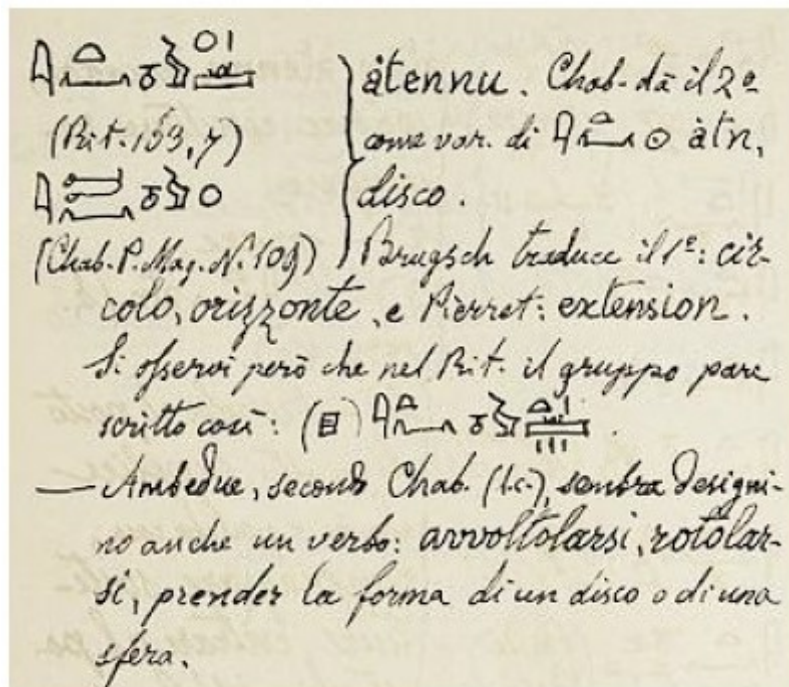 àtennu. Chab. dà il 2º
(Rit. 163, 7) come var. di àtn,
disco.
(Chab. P. Mag. N. 109) Brugsch traduce il 1º: cir-
colo, orizzonte, e Pierret: extension.
Si osservi però che nel Rit. il gruppo pare
scritto così: ( ) .
— Ambedue, secondo Chab. (l.c.), sembra designi-
no anche un verbo: avvoltolarsi, rotolar-
si, prender la forma di un disco o di una
sfera.